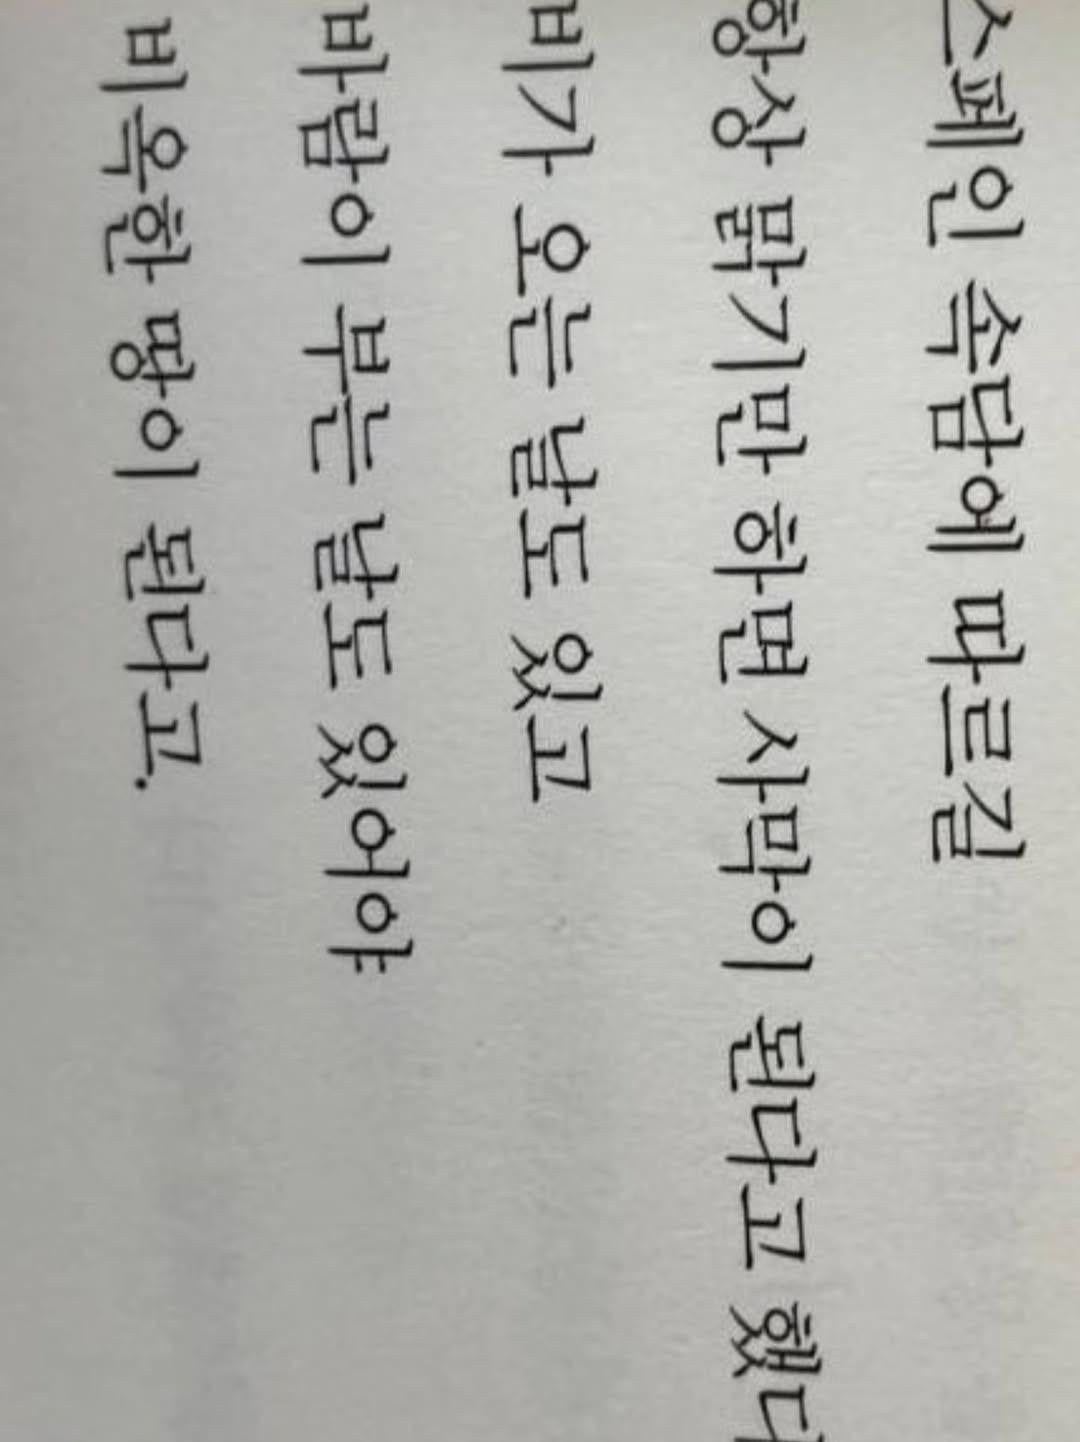 스페인 속담에 따르길
항상 맑기만 하면 사막이 된다고 했다
비가 오는 날도 있고
바람이 부는 날도 있어야
비옥한 땅이 된다고.